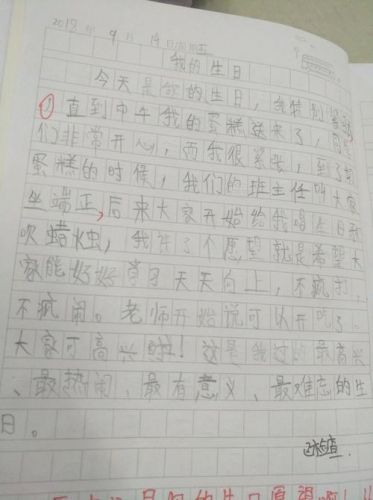 2018年9月14日星期五
我的生日
今天是我的生日，我特别
直到中午我的蛋糕送来了，同学
们非常开心，而我很紧张，到了
蛋糕的时候，我们的班主任叫大家
坐端正，后来大家开始给我唱生日
吹蜡烛，我许了个愿望就是希望大
家能好好学习天天向上，不疯打，
不疯闹。老师开始说可以开吃了。
大家可高兴啦！这是我过的最高兴
、最热闹、最有意义、最难忘的生
日。